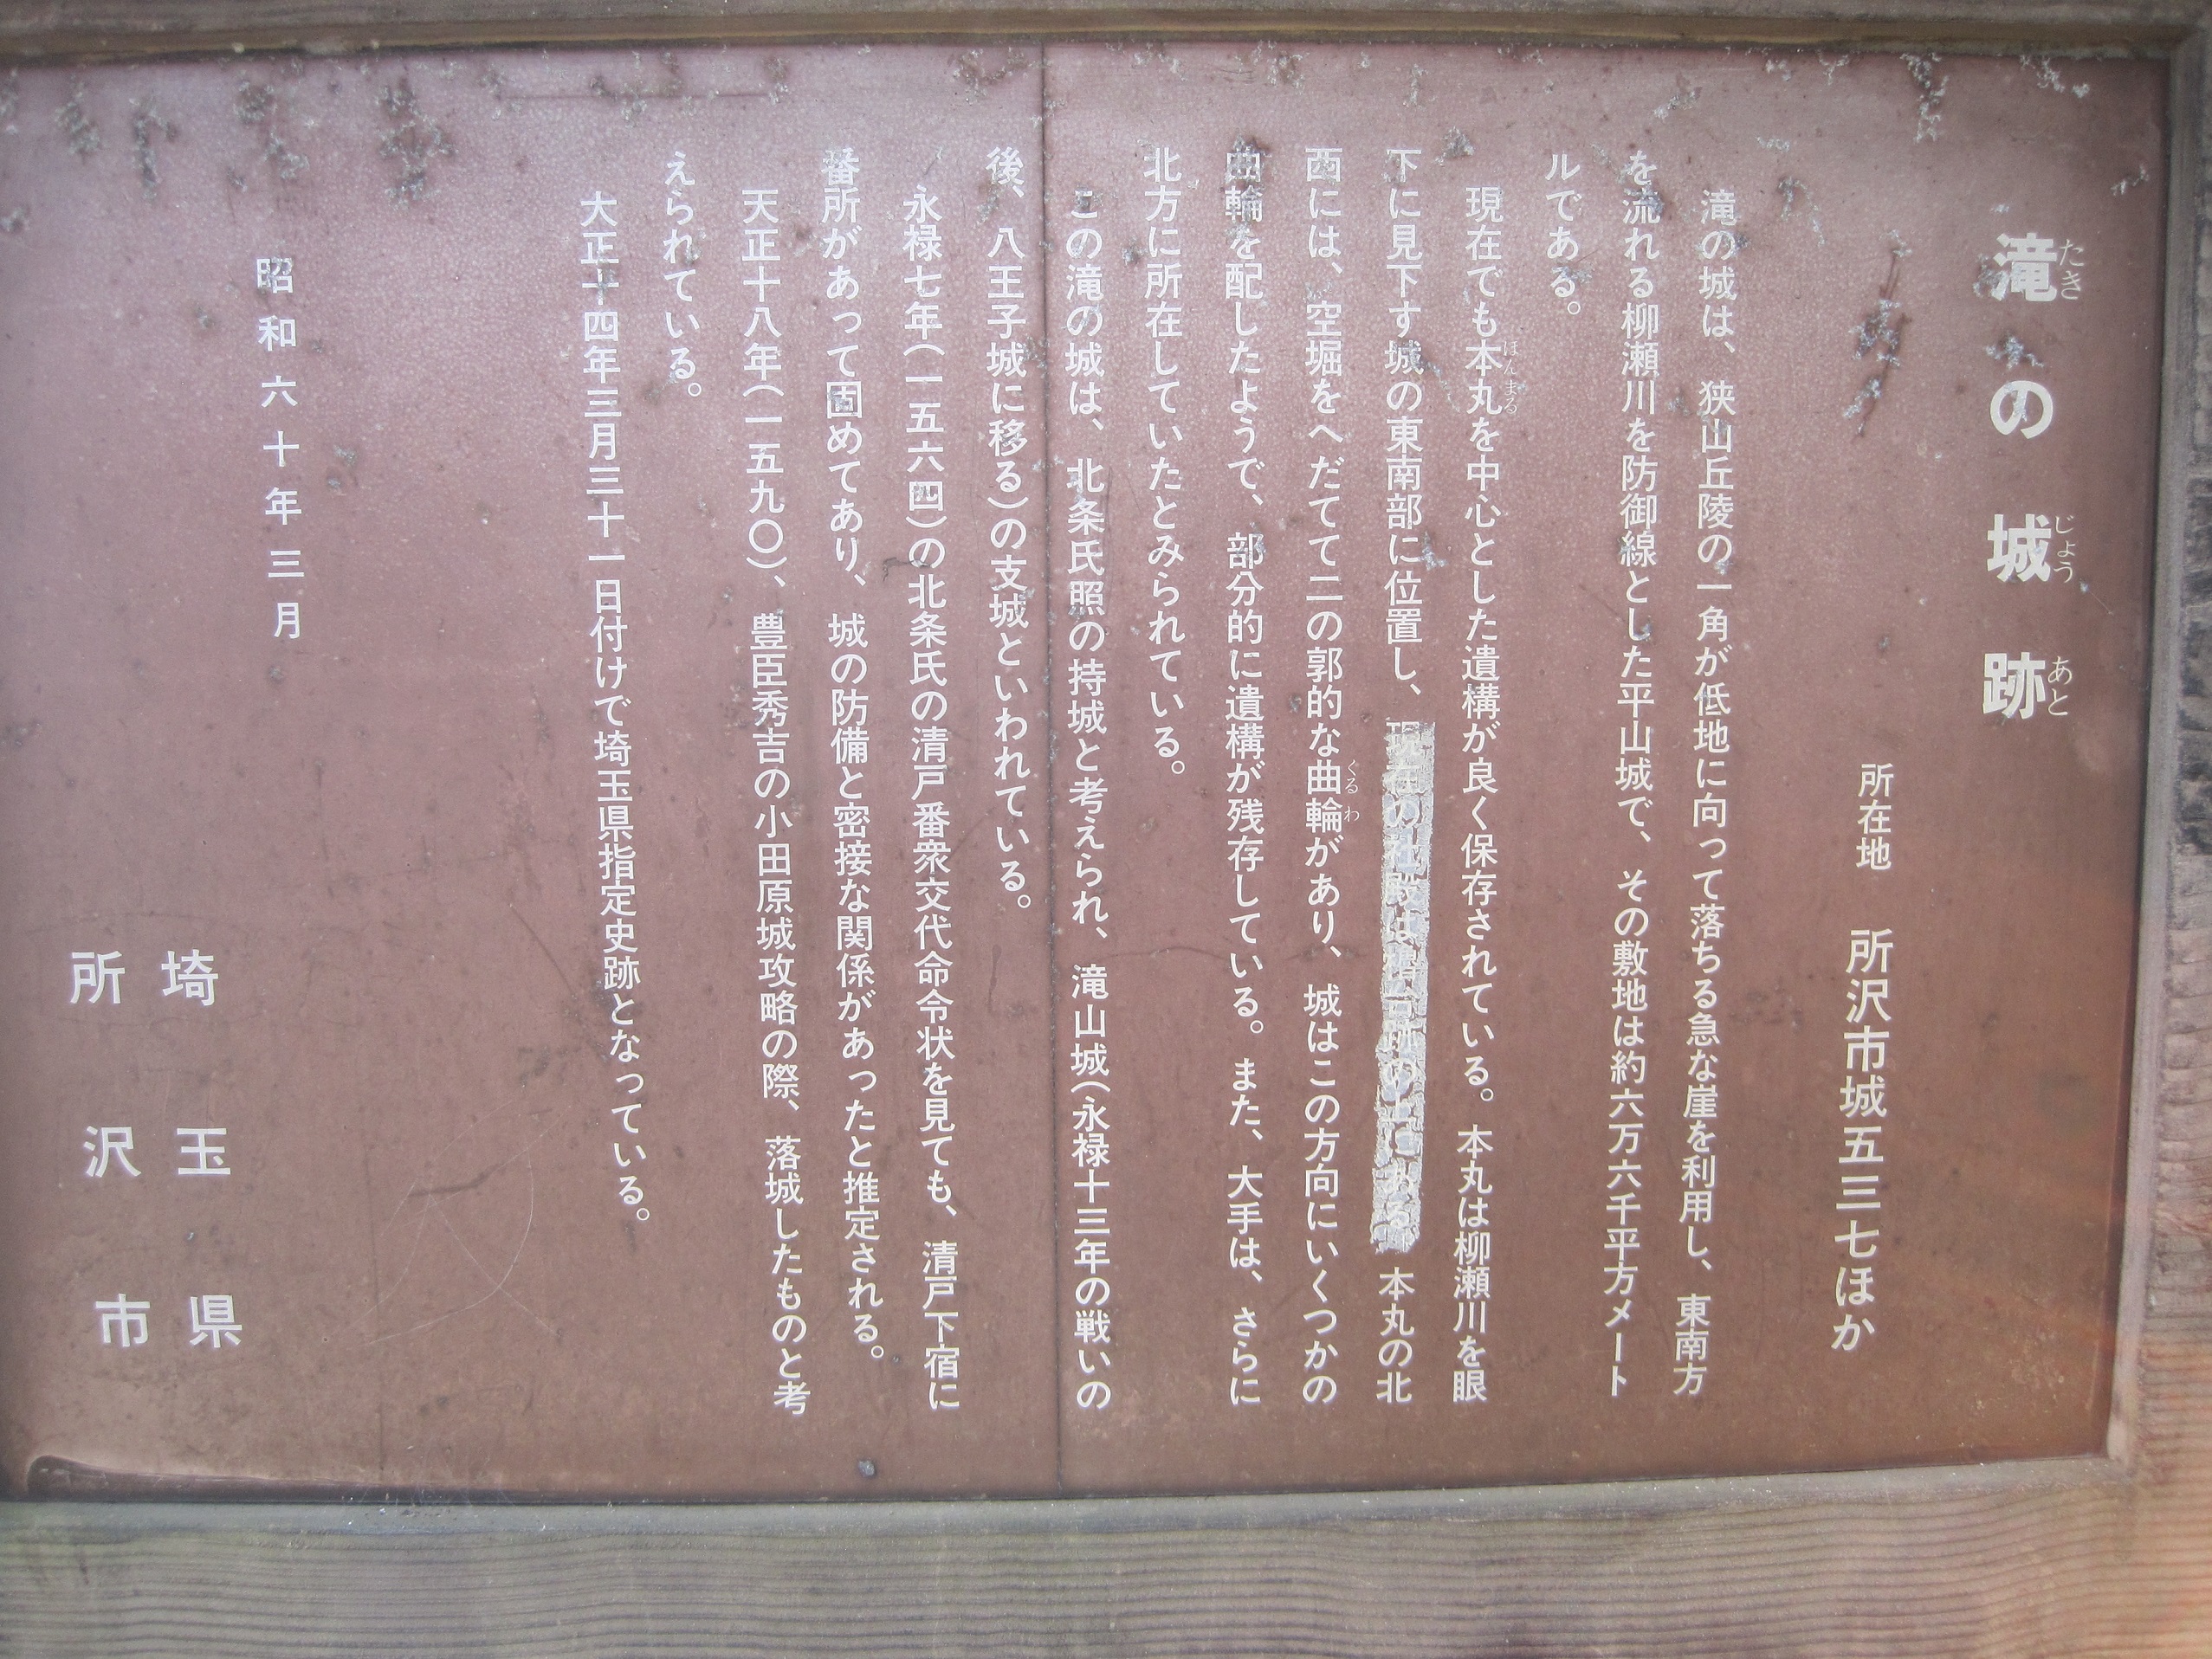 滝の城跡
たき じょう あと
所在地 所沢市城五三七ほか
滝の城は、狭山丘陵の一角が低地に向って落ちる急な崖を利用し、東南方
を流れる柳瀬川を防御線とした平山城で、その敷地は約六万六千平方メート
ルである。
現在でも本丸を中心とした遺構が良く保存されている。本丸は柳瀬川を眼
ほんまる
下に見下す城の東南部に位置し、現在の社殿は櫓台跡の上にある。本丸の北
西には、空堀をへだてて二の郭的な曲輪があり、城はこの方向にいくつかの
ぐるわ
曲輪を配したようで、部分的に遺構が残存している。また、大手は、さらに
北方に所在していたとみられている。
この滝の城は、北条氏照の持城と考えられ、滝山城(永禄十三年の戦いの
後、八王子城に移る)の支城といわれている。
永禄七年(一五六四)の北条氏の清戸番衆交代命令状を見ても、清戸下宿に
番所があって固めてあり、城の防備と密接な関係があったと推定される。
天正十八年(一五九〇)、豊臣秀吉の小田原城攻略の際、落城したものと考
えられている。
大正十四年三月三十一日付けで埼玉県指定史跡となっている。
昭和六十年三月
埼玉県
所沢市